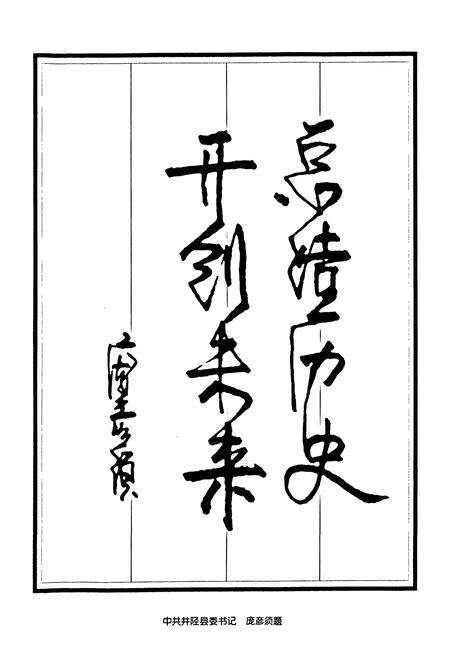 总结历史
开创未来
庞彦须
中共井陉县委书记　庞彦须题